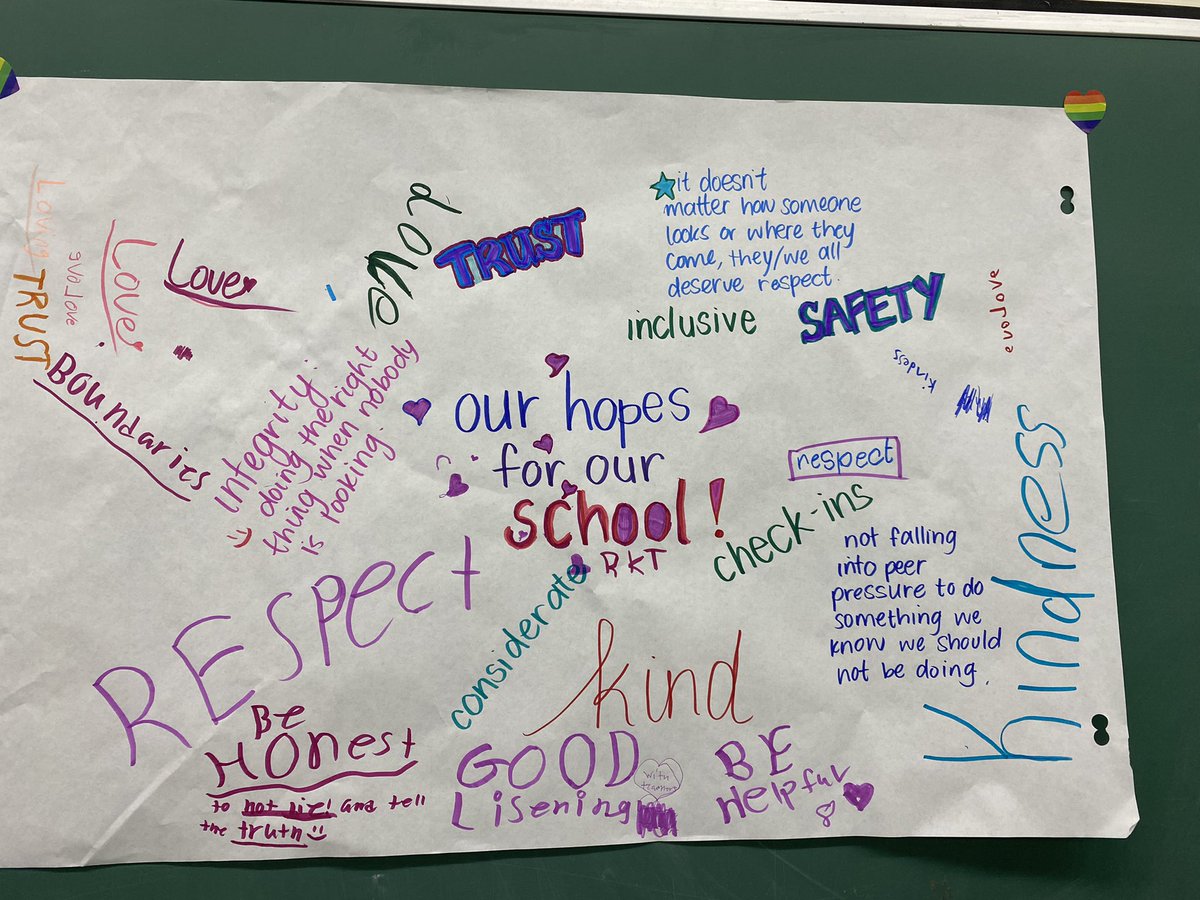 Loveg
TRUST
eveLove
Love
Love
Boundaries
Love
TRUST
it doesn't
matter how someone
looks or where they
come, they/we all
deserve respect.
inclusive
SAFETY
kindess
Kindness
Integrity:
doing the right
thing when nobody
is looking.
our hopes
for our
school!
RKT
respect
check-ins
not falling
into peer
pressure to do
something we
know we should
not be doing.
REspect
considerate
kind
Be
Honest
to not lie! and tell
the truth
GOOD
Lisening
BE
Helpful